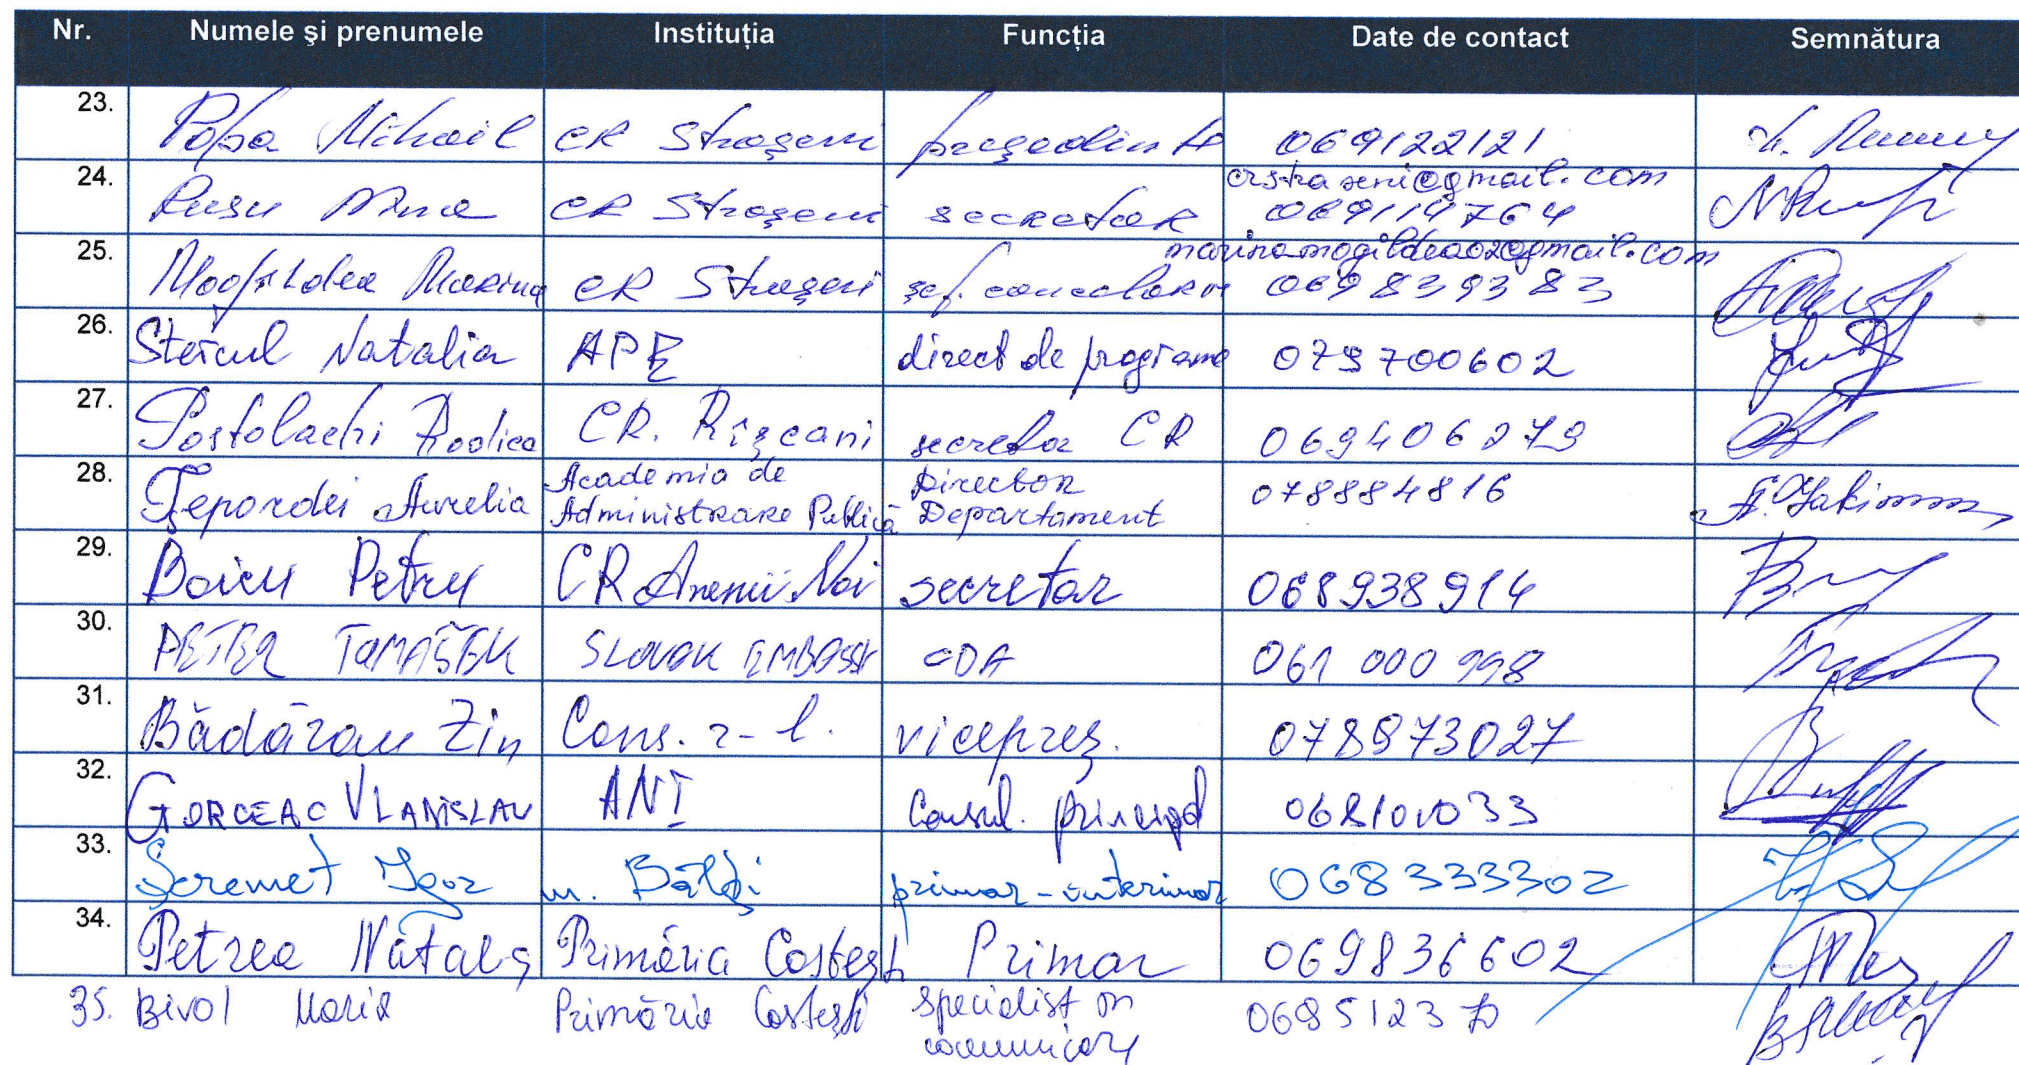 Nr. Numele și prenumele Instituția Funcția Date de contact Semnătura
23. Popa Mihail CR Strașeni președinte 069122121
24. Rusu CR Strașeni secretar crstraseni@gmail.com 069114764
25. Mogîldea Marina CR Strașeni șef. cancelarie marina.mogildea02@gmail.com 069839383
26. Steicul Natalia APE direct de programe 079700602
27. Postolachi Rodica CR. Rîșcani secretar CR 069406279
28. Țepordei Aurelia Academia de Administrare Publică Director Departament 078884816
29. Boicu Petru CR Anenii Noi secretar 068938914
30. PETER TOMAŠEK SLOVAK EMBASSY CDA 061 000 998
31. Bădărau Zin Cons. r-l. vicepreș. 078873027
32. GORCEAC VLADISLAV ANI Consul. principal
33. Șeremet Igor m. Bălți primar-interimar 068333302
34. Petrea Natalia Primăria Costești Primar 069836602
35. Bivol Maria Primăria Costești specialist în
comunicare